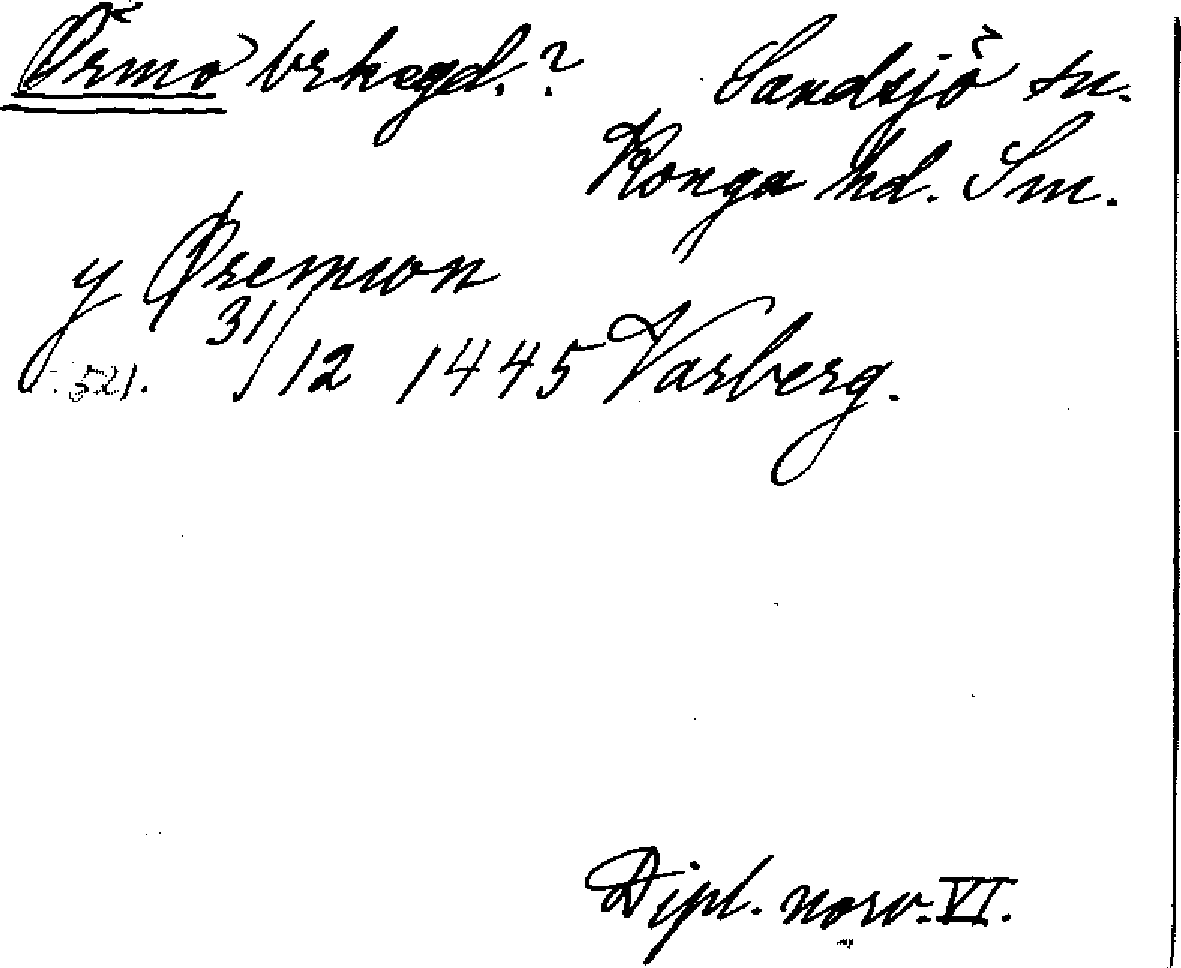 Örmo brkegd.? Sandsjö sn.
Konga hd. Sm.
y Øremwon
31/12 1445 Varberg.
s. 521.
Dipl. norv. VI.